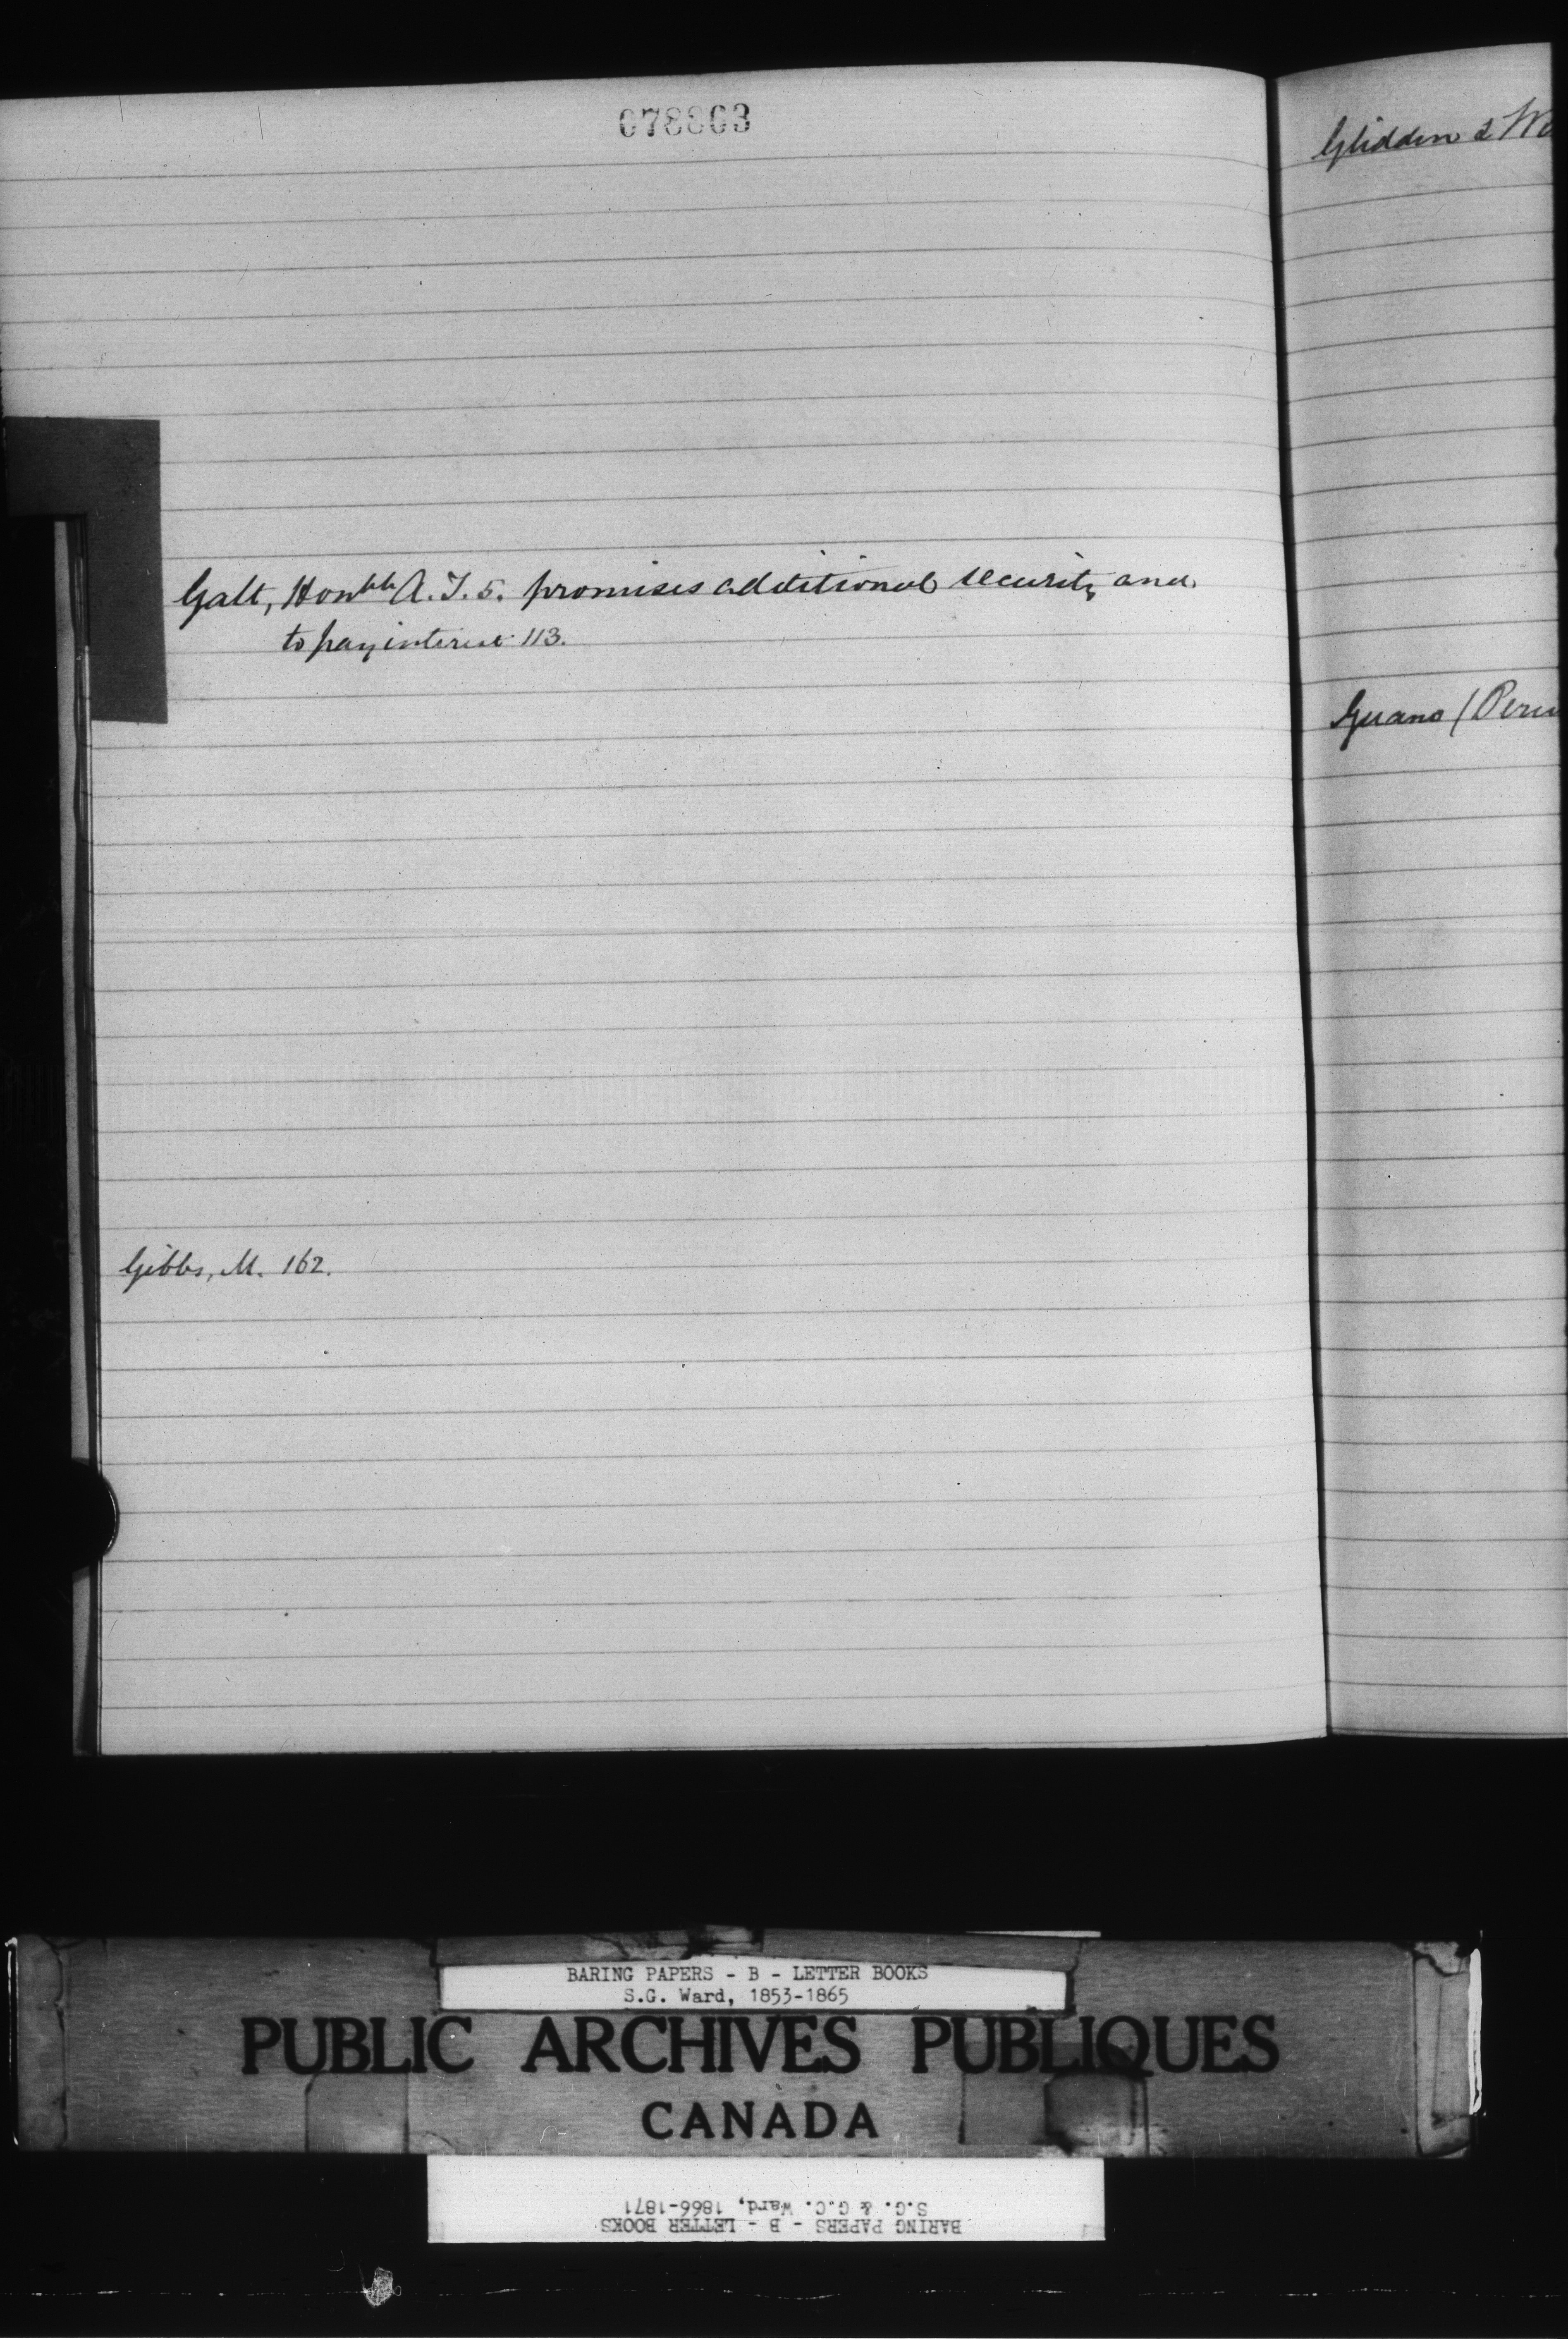 078803
Galt, Honble A. T. 5. promises additional security and
to pay interest 113.
Gibbs, M. 162.
Glidden & W
Guano (Peru
BARING PAPERS - B - LETTER BOOKS
S.G. Ward, 1853-1865
PUBLIC ARCHIVES PUBLIQUES
CANADA
BARING PAPERS - B - LETTER BOOKS
S.G. & G.C. Ward, 1866-1871